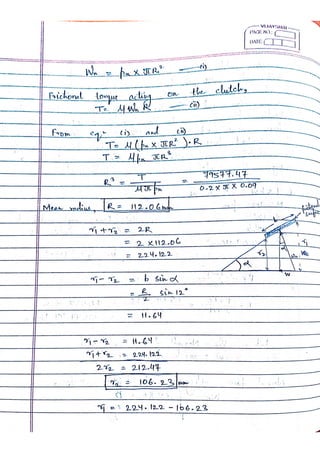 VIDYARTHI
PAGE NO.
DATE:
Wn = pn × πR² — (i)
Frictional torque acting on the clutch,
T = μ Wn R — (ii)
From eqⁿ (i) and (ii)
T = μ (pn × πR²) · R
T = μ pn πR³
R³ = T / μπpn = 79577.47 / 0.2 × π × 0.09
Mean radius, R = 112.06 mm
r1 + r2 = 2R
= 2 × 112.06
= 224.122
r1 - r2 = b sin α
= R/2 sin 12°
= 11.64
r1 - r2 = 11.64
r1 + r2 = 224.122
2r2 = 212.47
r2 = 106.23 mm
r1 = 224.122 - 106.23
b
α
r2
R
r1
α
W